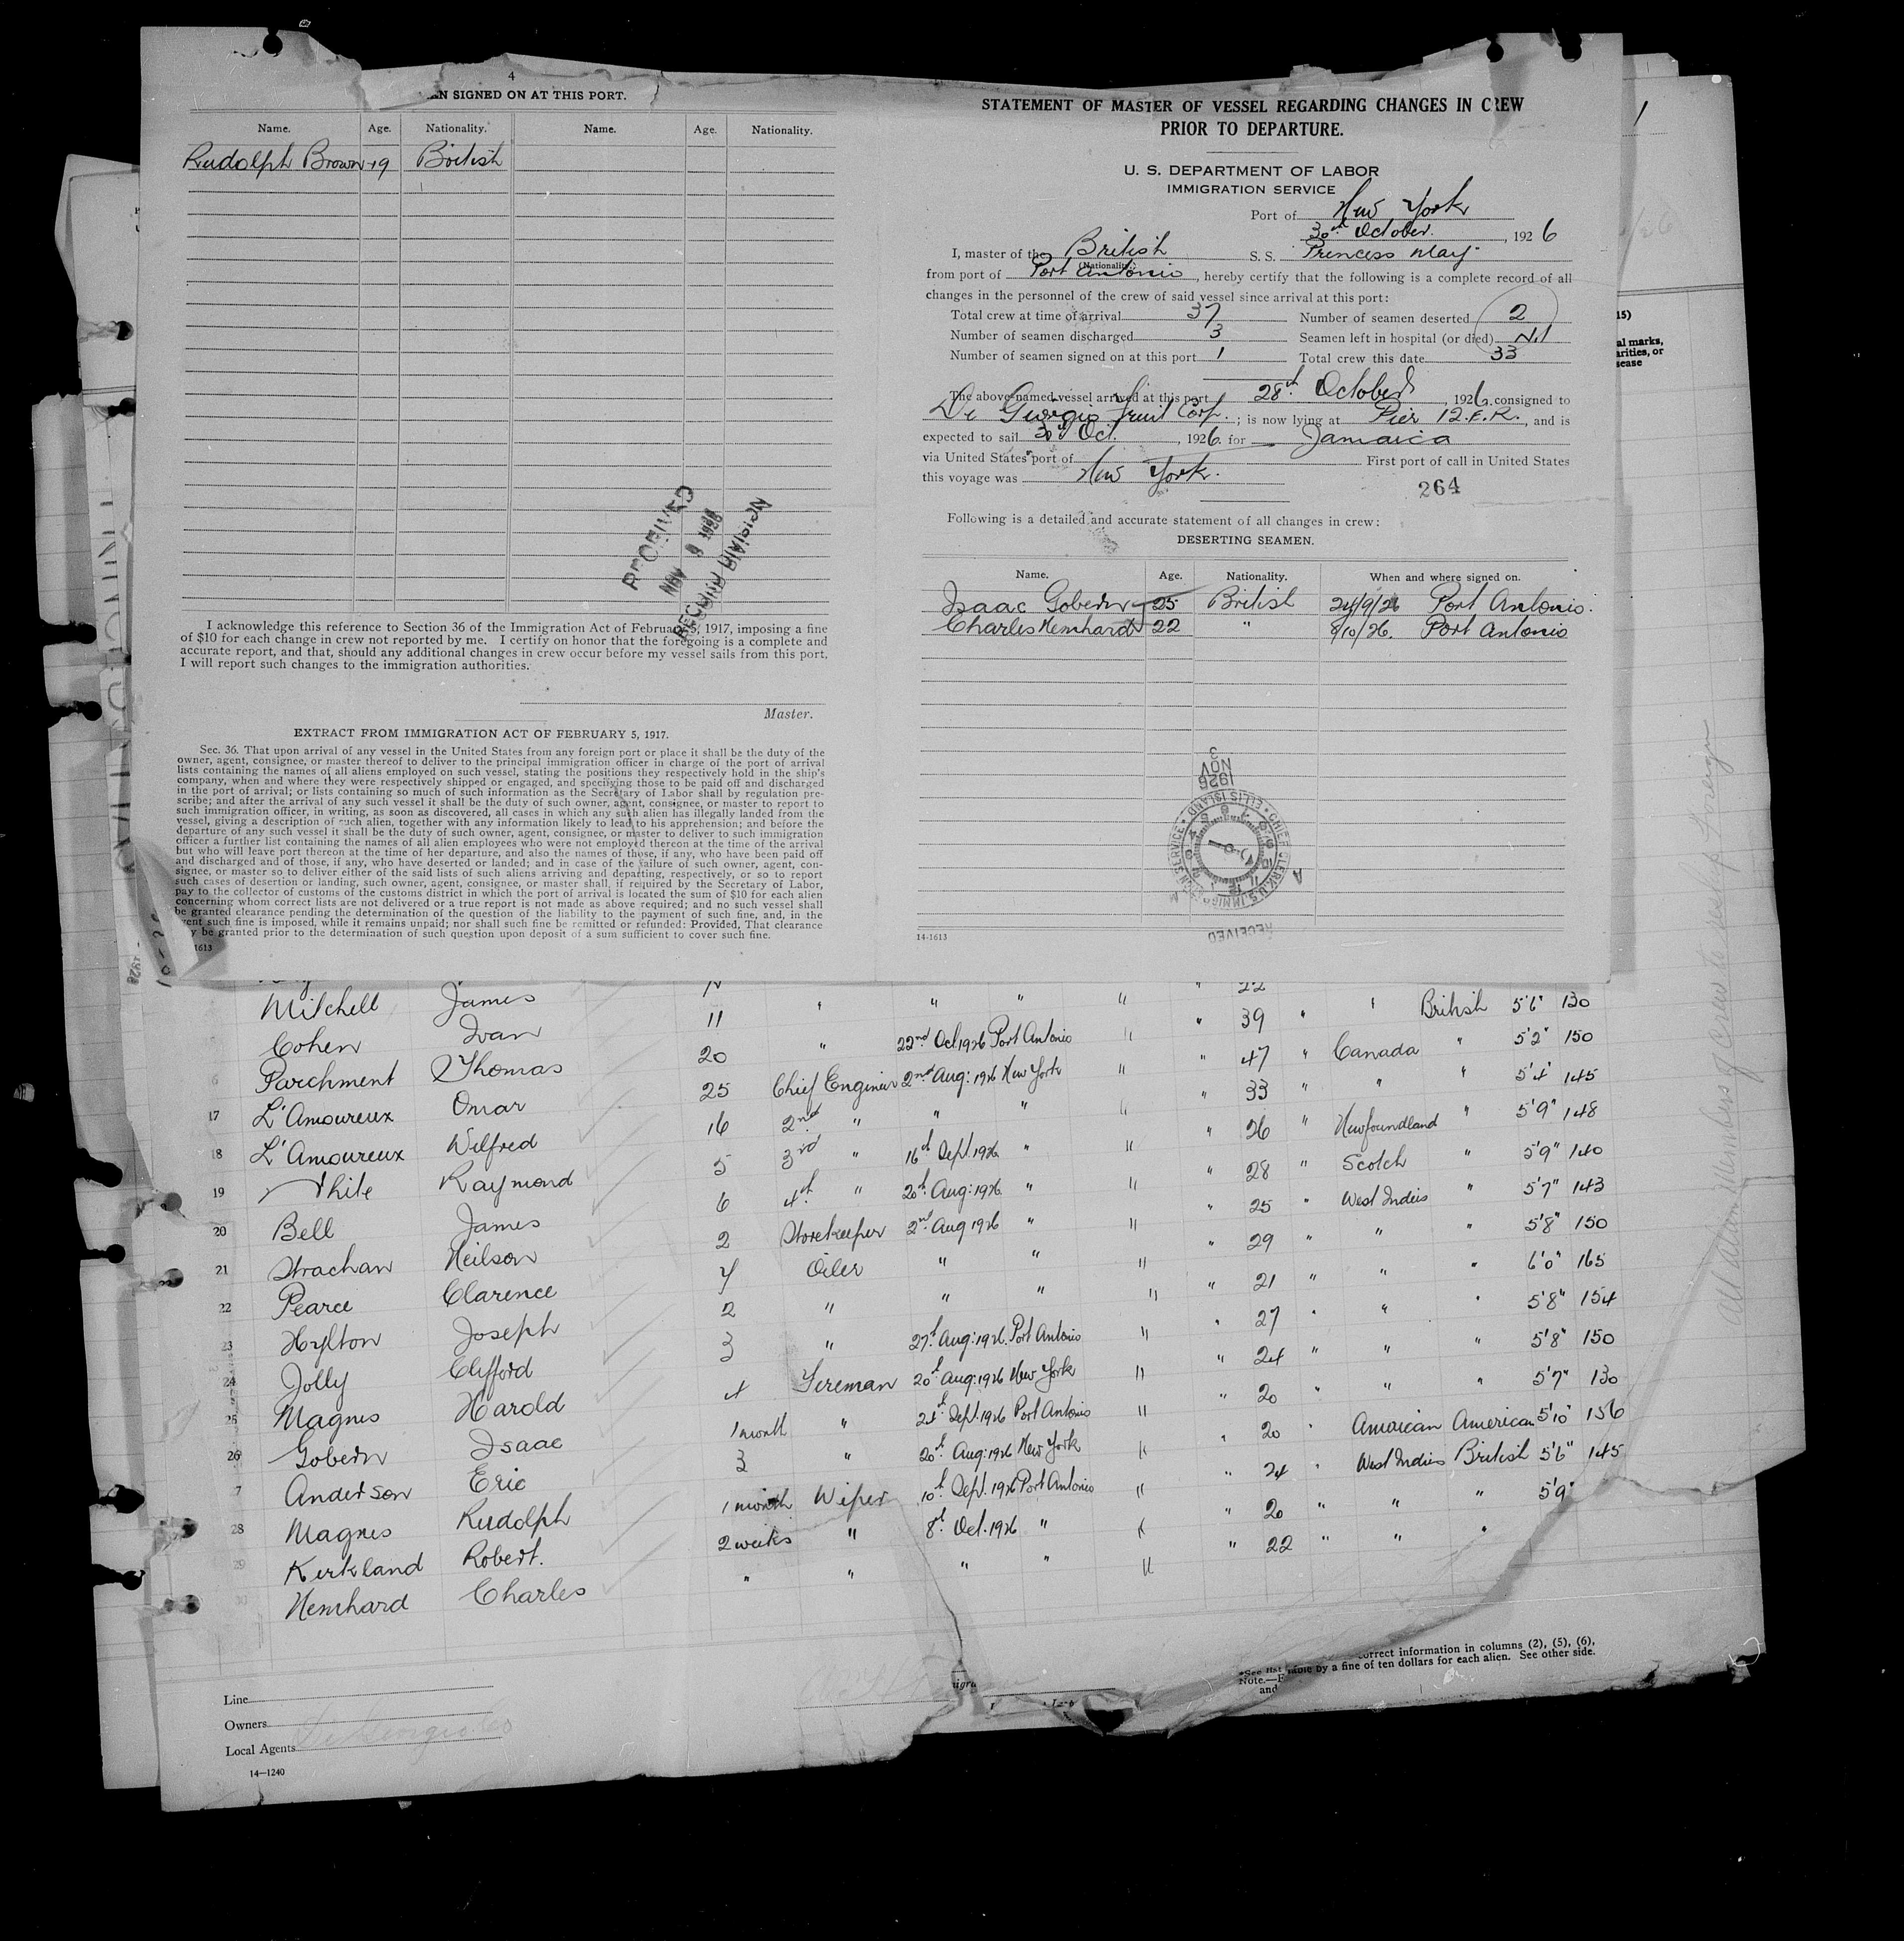 4
EN SIGNED ON AT THIS PORT.
Name. Age. Nationality. Name. Age. Nationality.
Rudolph Brown 19 British
RECEIVED
NOV
RECORD DIVISION
I acknowledge this reference to Section 36 of the Immigration Act of February 5, 1917, imposing a fine
of $10 for each change in crew not reported by me. I certify on honor that the foregoing is a complete and
accurate report, and that, should any additional changes in crew occur before my vessel sails from this port,
I will report such changes to the immigration authorities.
Master.
EXTRACT FROM IMMIGRATION ACT OF FEBRUARY 5, 1917.
Sec. 36. That upon arrival of any vessel in the United States from any foreign port or place it shall be the duty of the
owner, agent, consignee, or master thereof to deliver to the principal immigration officer in charge of the port of arrival
lists containing the names of all aliens employed on such vessel, stating the positions they respectively hold in the ship's
company, when and where they were respectively shipped or engaged, and specifying those to be paid off and discharged
in the port of arrival; or lists containing so much of such information as the Secretary of Labor shall by regulation pre-
scribe; and after the arrival of any such vessel it shall be the duty of such owner, agent, consignee, or master to report to
such immigration officer, in writing, as soon as discovered, all cases in which any such alien has illegally landed from the
vessel, giving a description of such alien, together with any information likely to lead to his apprehension; and before the
departure of any such vessel it shall be the duty of such owner, agent, consignee, or master to deliver to such immigration
officer a further list containing the names of all alien employees who were not employed thereon at the time of the arrival
but who will leave port thereon at the time of her departure, and also the names of those, if any, who have been paid off
and discharged and of those, if any, who have deserted or landed; and in case of the failure of such owner, agent, con-
signee, or master so to deliver either of the said lists of such aliens arriving and departing, respectively, or so to report
such cases of desertion or landing, such owner, agent, consignee, or master shall, if required by the Secretary of Labor,
pay to the collector of customs of the customs district in which the port of arrival is located the sum of $10 for each alien
concerning whom correct lists are not delivered or a true report is not made as above required; and no such vessel shall
be granted clearance pending the determination of the question of the liability to the payment of such fine, and, in the
vent such fine is imposed, while it remains unpaid; nor shall such fine be remitted or refunded: Provided, That clearance
y be granted prior to the determination of such question upon deposit of a sum sufficient to cover such fine.
1613
STATEMENT OF MASTER OF VESSEL REGARDING CHANGES IN CREW
PRIOR TO DEPARTURE.
U. S. DEPARTMENT OF LABOR
IMMIGRATION SERVICE
Port of New York
30th October., 1926
I, master of the British S. S. Princess May
(Nationality)
from port of Port Antonio, hereby certify that the following is a complete record of all
changes in the personnel of the crew of said vessel since arrival at this port:
Total crew at time of arrival 37 Number of seamen deserted 2
Number of seamen discharged 3 Seamen left in hospital (or died) Nil
Number of seamen signed on at this port 1 Total crew this date 33
The above-named vessel arrived at this port 28th October, 1926, consigned to
Di Giorgio Fruit Corp.; is now lying at Pier 12.E.R., and is
expected to sail 30th Oct., 1926. for Jamaica
via United States port of First port of call in United States
this voyage was New York.
264
Following is a detailed and accurate statement of all changes in crew:
DESERTING SEAMEN.
Name. Age. Nationality. When and where signed on.
Isaac Gobern 25 British 24/9/26 Port Antonio.
Charles Hemhard 22 " 8/10/26. Port Antonio
1926
NOV
3
CHIEF CLERK, U.S. IMMIGRATION SERVICE • ELLIS ISLAND
RECEIVED
14-1613
15)
al marks,
arities, or
sease
1
All alien Members of Crew to reship foreign
22
Mitchell James 11 " " " " " 39 " " British 5'6" 130
Cohen Ivan 20 " 22nd Oct 1926 Port Antonio " " 47 " Canada " 5'2" 150
6 Parchment Thomas 25 Chief Engineer 2nd Aug: 1926 New York " " 33 " " " 5'4" 145
17 L'Amoureux Omar 16 2nd " " " " " 26 " Newfoundland " 5'9" 148
18 L'Amoureux Wilfred 5 3rd " 16th Sept. 1926 " " " 28 " Scotch " 5'9" 140
19 White Raymond 6 4th " 20th Aug: 1926 " " " 25 " West Indies " 5'7" 143
20 Bell James 2 Storekeeper 2nd Aug 1926 " " " 29 " " " 5'8" 150
21 Strachan Neilson 4 Oiler " " " " 21 " " " 6'0" 165
22 Pearce Clarence 2 " " " " " 27 " " " 5'8" 154
23 Hylton Joseph 3 " 27th Aug: 1926. Port Antonio " " 24 " " " 5'8" 150
24 Jolly Clifford 4 Fireman 20th Aug: 1926 New York " " 20 " " " 5'7" 130
25 Magnus Harold 1 month " 24th Sept. 1926 Port Antonio " " 20 " American American 5'10" 156
26 Gobern Isaac 3 " 20th Aug: 1926 New York " " 24 " West Indies British 5'6" 145
7 Anderson Eric 1 month Wiper 10th Sept. 1926 Port Antonio " " 20 " " " 5'9"
28 Magnus Rudolph 2 weeks " 8th Oct. 1926 " " " 22 " " "
29 Kirkland Robert. " " " " "
30 Hemhard Charles
Line
Owners
Local Agents Di Giorgio Co
14—1240
orrect information in columns (2), (5), (6),
Note.— able by a fine of ten dollars for each alien. See other side.
and